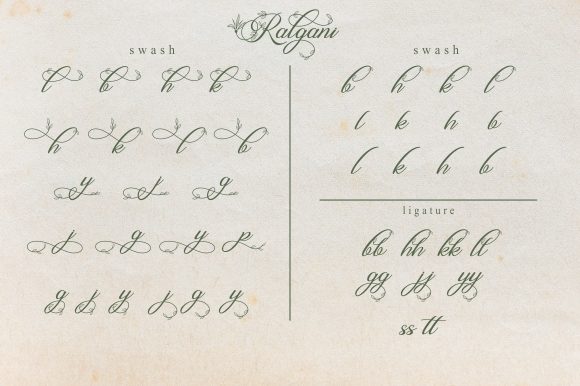 Ralgani
swash
l b h k
h k l b
y j g
j g y p
g j y j g y
swash
b h k l
l k h b
l k h b
ligature
bb hh kk ll
gg jj yy
ss tt